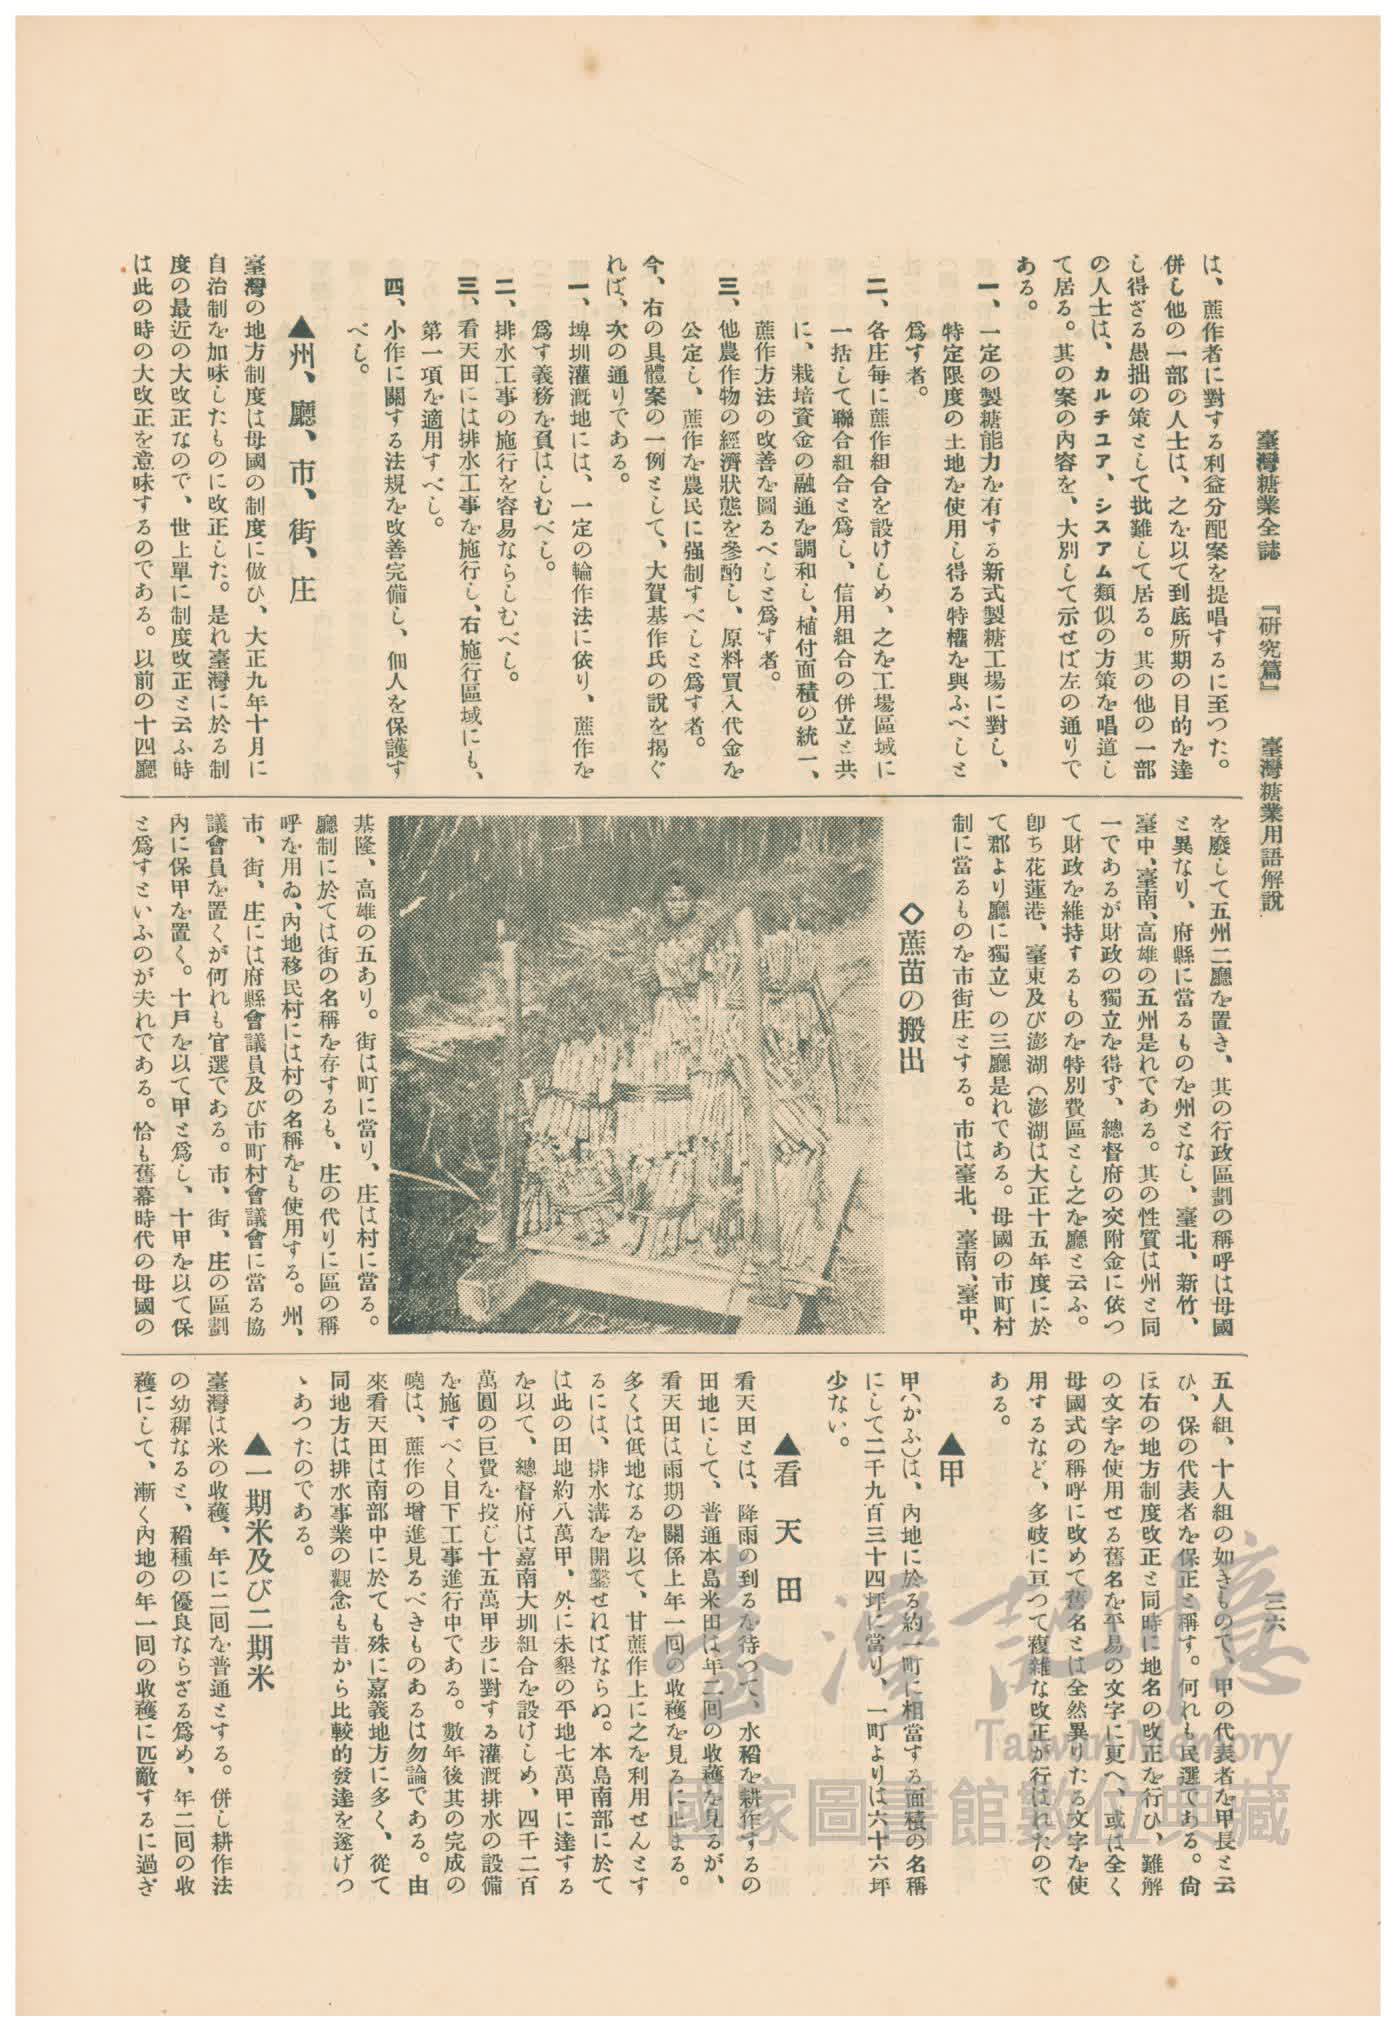 臺灣糖業全誌　『研究篇』　臺灣糖業用語解說
三六
は、蔗作者に對する利益分配案を提唱するに至つた。
併し他の一部の人士は、之を以て到底所期の目的を達
し得ざる愚拙の策として批難して居る。其の他の一部
の人士は、カルチユア、シスアム類似の方策を唱道し
て居る。其の案の內容を、大別して示せば左の通りで
ある。
一、一定の製糖能力を有する新式製糖工場に對し、
特定限度の土地を使用し得る特權を與ふべしと
爲す者。
二、各庄每に蔗作組合を設けしめ、之を工場區域に
一括して聯合組合と爲し、信用組合の併立と共
に、栽培資金の融通を調和し、植付面積の統一、
蔗作方法の改善を圖るべしと爲す者。
三、他農作物の經濟狀態を參酌し、原料買入代金を
公定し、蔗作を農民に强制すべしと爲す者。
今、右の具體案の一例として、大賀基作氏の說を揭ぐ
れば、次の通りである。
一、埤圳灌漑地には、一定の輪作法に依り、蔗作を
爲す義務を負はしむべし。
二、排水工事の施行を容易ならしむべし。
三、看天田には排水工事を施行し、右施行區域にも、
第一項を適用すべし。
四、小作に關する法規を改善完備し、佃人を保護す
べし。
▲州、廳、市、街、庄
臺灣の地方制度は母國の制度に倣ひ、大正九年十月に
自治制を加味したものに改正した。是れ臺灣に於る制
度の最近の大改正なので、世上單に制度改正と云ふ時
は此の時の大改正を意味するのである。以前の十四廳
を廢して五州二廳を置き、其の行政區劃の稱呼は母國
と異なり、府縣に當るものを州となし、臺北、新竹、
臺中、臺南、高雄の五州是れである。其の性質は州と同
一であるが財政の獨立を得ず、總督府の交附金に依つ
て財政を維持するものを特別費區とし之を廳と云ふ。
卽ち花蓮港、臺東及び澎湖（澎湖は大正十五年度に於
て郡より廳に獨立）の三廳是れである。母國の市町村
制に當るものを市街庄とする。市は臺北、臺南、臺中、
◇蔗苗の搬出
基隆、高雄の五あり。街は町に當り、庄は村に當る。
廳制に於ては街の名稱を存するも、庄の代りに區の稱
呼を用ゐ、內地移民村には村の名稱をも使用する。州、
市、街、庄には府縣會議員及び市町村會議會に當る協
議會員を置くが何れも官選である。市、街、庄の區劃
內に保甲を置く。十戶を以て甲と爲し、十甲を以て保
と爲すといふのが夫れである。恰も舊幕時代の母國の
五人組、十人組の如きもので、甲の代表者を甲長と云
ひ、保の代表者を保正と稱す。何れも民選である。尙
ほ右の地方制度改正と同時に地名の改正を行ひ、難解
の文字を使用せる舊名を平易の文字に更へ、或は全く
母國式の稱呼に改めて舊名とは全然異りたる文字を使
用するなど、多岐に亘つて複雜な改正が行はれたので
ある。
▲甲
甲（かふ）は、內地に於る約一町に相當する面積の名稱
にして二千九百三十四坪に當り、一町よりは六十六坪
少ない。
▲看天田
看天田とは、降雨の到るを待つて、水稻を耕作するの
田地にして、普通本島米田は年二回の收穫を見るが、
看天田は雨期の關係上年一回の收穫を見るに止まる。
多くは低地なるを以て、甘蔗作上に之を利用せんとす
るには、排水溝を開鑿せねばならぬ。本島南部に於て
は此の田地約八萬甲、外に未墾の平地七萬甲に達する
を以て、總督府は嘉南大圳組合を設けしめ、四千二百
萬圓の巨費を投じ十五萬甲步に對する灌漑排水の設備
を施すべく目下工事進行中である。數年後其の完成の
曉は、蔗作の增進見るべきものあるは勿論である。由
來看天田は南部中に於ても殊に嘉義地方に多く、從て
同地方は排水事業の觀念も昔から比較的發達を遂げつ
ゝあつたのである。
▲一期米及び二期米
臺灣は米の收穫、年に二回を普通とする。併し耕作法
の幼穉なると、稻種の優良ならざる爲め、年二回の收
穫にして、漸く內地の年一回の收穫に匹敵するに過ぎ
臺灣記憶
Taiwan Memory
國家圖書館數位典藏